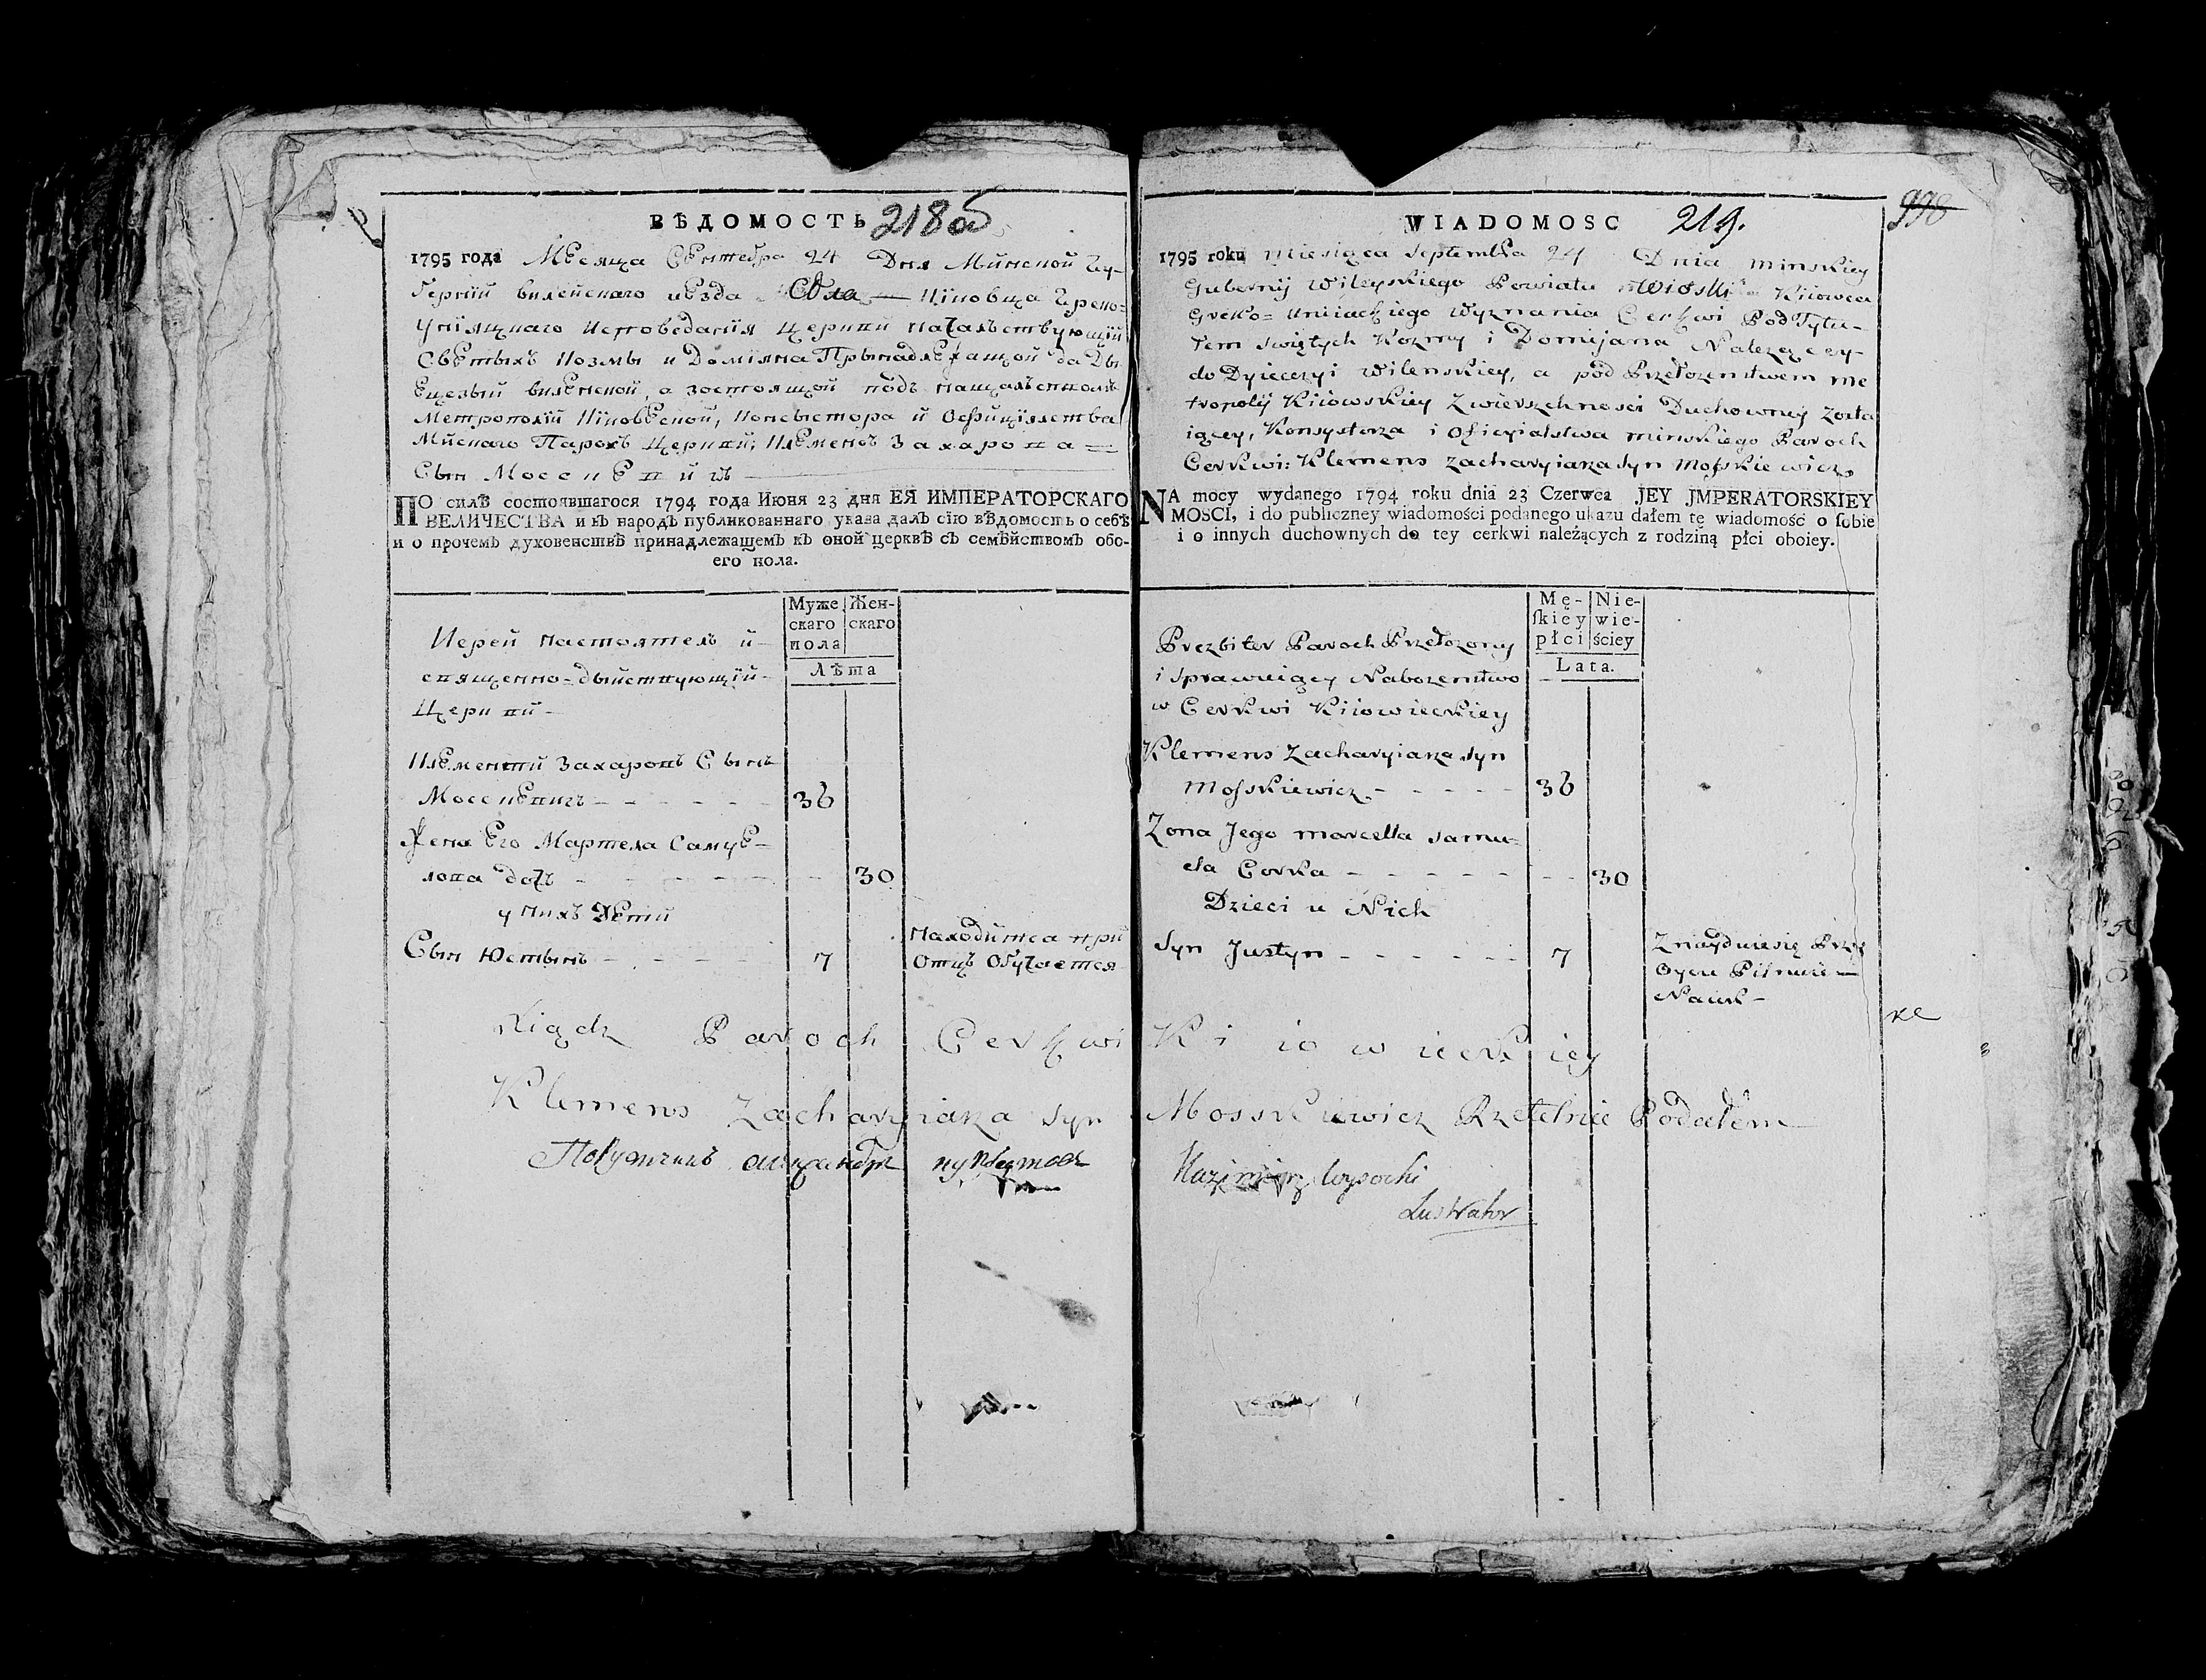 ВѢДОМОСТЬ 218об
1795 года Месяца Сентебра 24 Дня Минской Гу-
бернїи вилейскаго уезда Села — Кіовца Греко=
Унїяцкаго Исповеданїя Церкви началствующїй
Светыхъ Козмы и Домїяна Прынадлежащой да Ды
Ецезыи виленской, а зостоящой подъ началством
Метрополїи Кїовской, Консыстора и Офицїялства
Минскаго Парохъ Церкви; Клеменсъ Захарова =
Сын Мосскевичъ
ПО силѣ состоявшагося 1794 года Июня 23 дня ЕЯ ИМПЕРАТОРСКАГО
ВЕЛИЧЕСТВА и въ народъ публикованнаго указа далъ сїю вѣдомость о себѣ
и о прочемъ духовенствѣ принадлежащемъ къ оной церквѣ съ семѣйствомъ обо-
его пола.
Муже скаго пола
Жен-скаго
Лѣта
Иерей настоятель и-
священно-дыйствующїй-
Церкви-
Клементи Захаровъ Сынъ
Мосскевичъ - - - - - 36
Жена Его Мартела Самуе-
лова дочь - - - - - 30
у нихъ Дети
Сын Юстынъ - - - - - 7
находитса при
Отцѣ Обучается
Xiądz Paroch Cerkwi Kiiowieckiey
Klemens Zacharyiasza syn Mosskiewicz Rzetelnie Podałem
Поручикъ
WIADOMOSC 219. 998
1795 roku miesiąca Septembra 24 Dnia minskiey
Gubernij Wileyskiego Powiatu Wioski Kiiowca
Greko= Uniackiego Wyznania Cerkwi Pod Tytu-
łem Swiętych Kozmy i Domijana Należącey-
do Dyiecezyi Wilenskiey, a pod Przełozenstwem me
tropolij Kiiowskiey Zwierzchnosci Duchowney Zosta
iącey, Konsystorza i Oficyialstwa minskiego Paroch
Cerkwi: Klemens Zacharyiasza syn Mosskiewicz
NA mocy wydanego 1794 roku dnia 23 Czerwca JEY JMPERATORSKIEY
MOSCI, i do publiczney wiadomości podanego ukazu dałem tę wiadomość o sobie
i o innych duchownych do tey cerkwi należących z rodziną płci oboiey.
Mę-skiey płci
Nie-wie-ściey
Lata.
Prezbiter Paroch Przełozony
i Sprawuiący Nabozenstwo
w Cerkwi Kiiowieckiey
Klemens Zacharyiasza syn
Mosskiewicz - - - - - 36
Zona Jego marcella samu-
ela Corka - - - - - 30
Dzieci u Nich
Syn Justyn - - - - - 7
Znayduiesię Przy
Oycu Pilnuie —
Nauk -
Kazimierz Wysocki
Lustrator